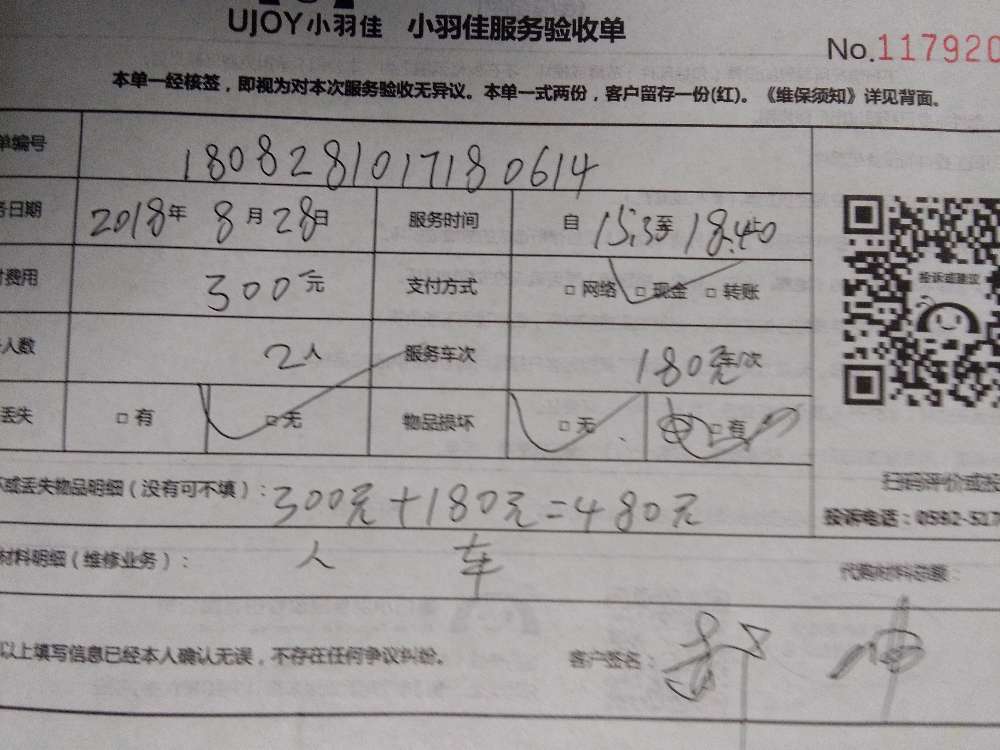 UJOY小羽佳 小羽佳服务验收单
No.117920
本单一经核签，即视为对本次服务验收无异议。本单一式两份，客户留存一份(红)。《维保须知》详见背面。
单编号 1808281017180614
务日期 2018年 8月28日 服务时间 自 15:3 至 18:40
费用 300元 支付方式 □网络 □现金 □转账
人数 2人 服务车次 180元车/次
丢失 □有 □无 物品损坏 □无 □有
投诉或建议
坏或丢失物品明细（没有可不填）：300元+180元=480元
人 车
扫码评价或投
投诉电话：0592-517
材料明细（维修业务）：
代购材料总额：
以上填写信息已经本人确认无误，不存在任何争议纠纷。 客户签名：